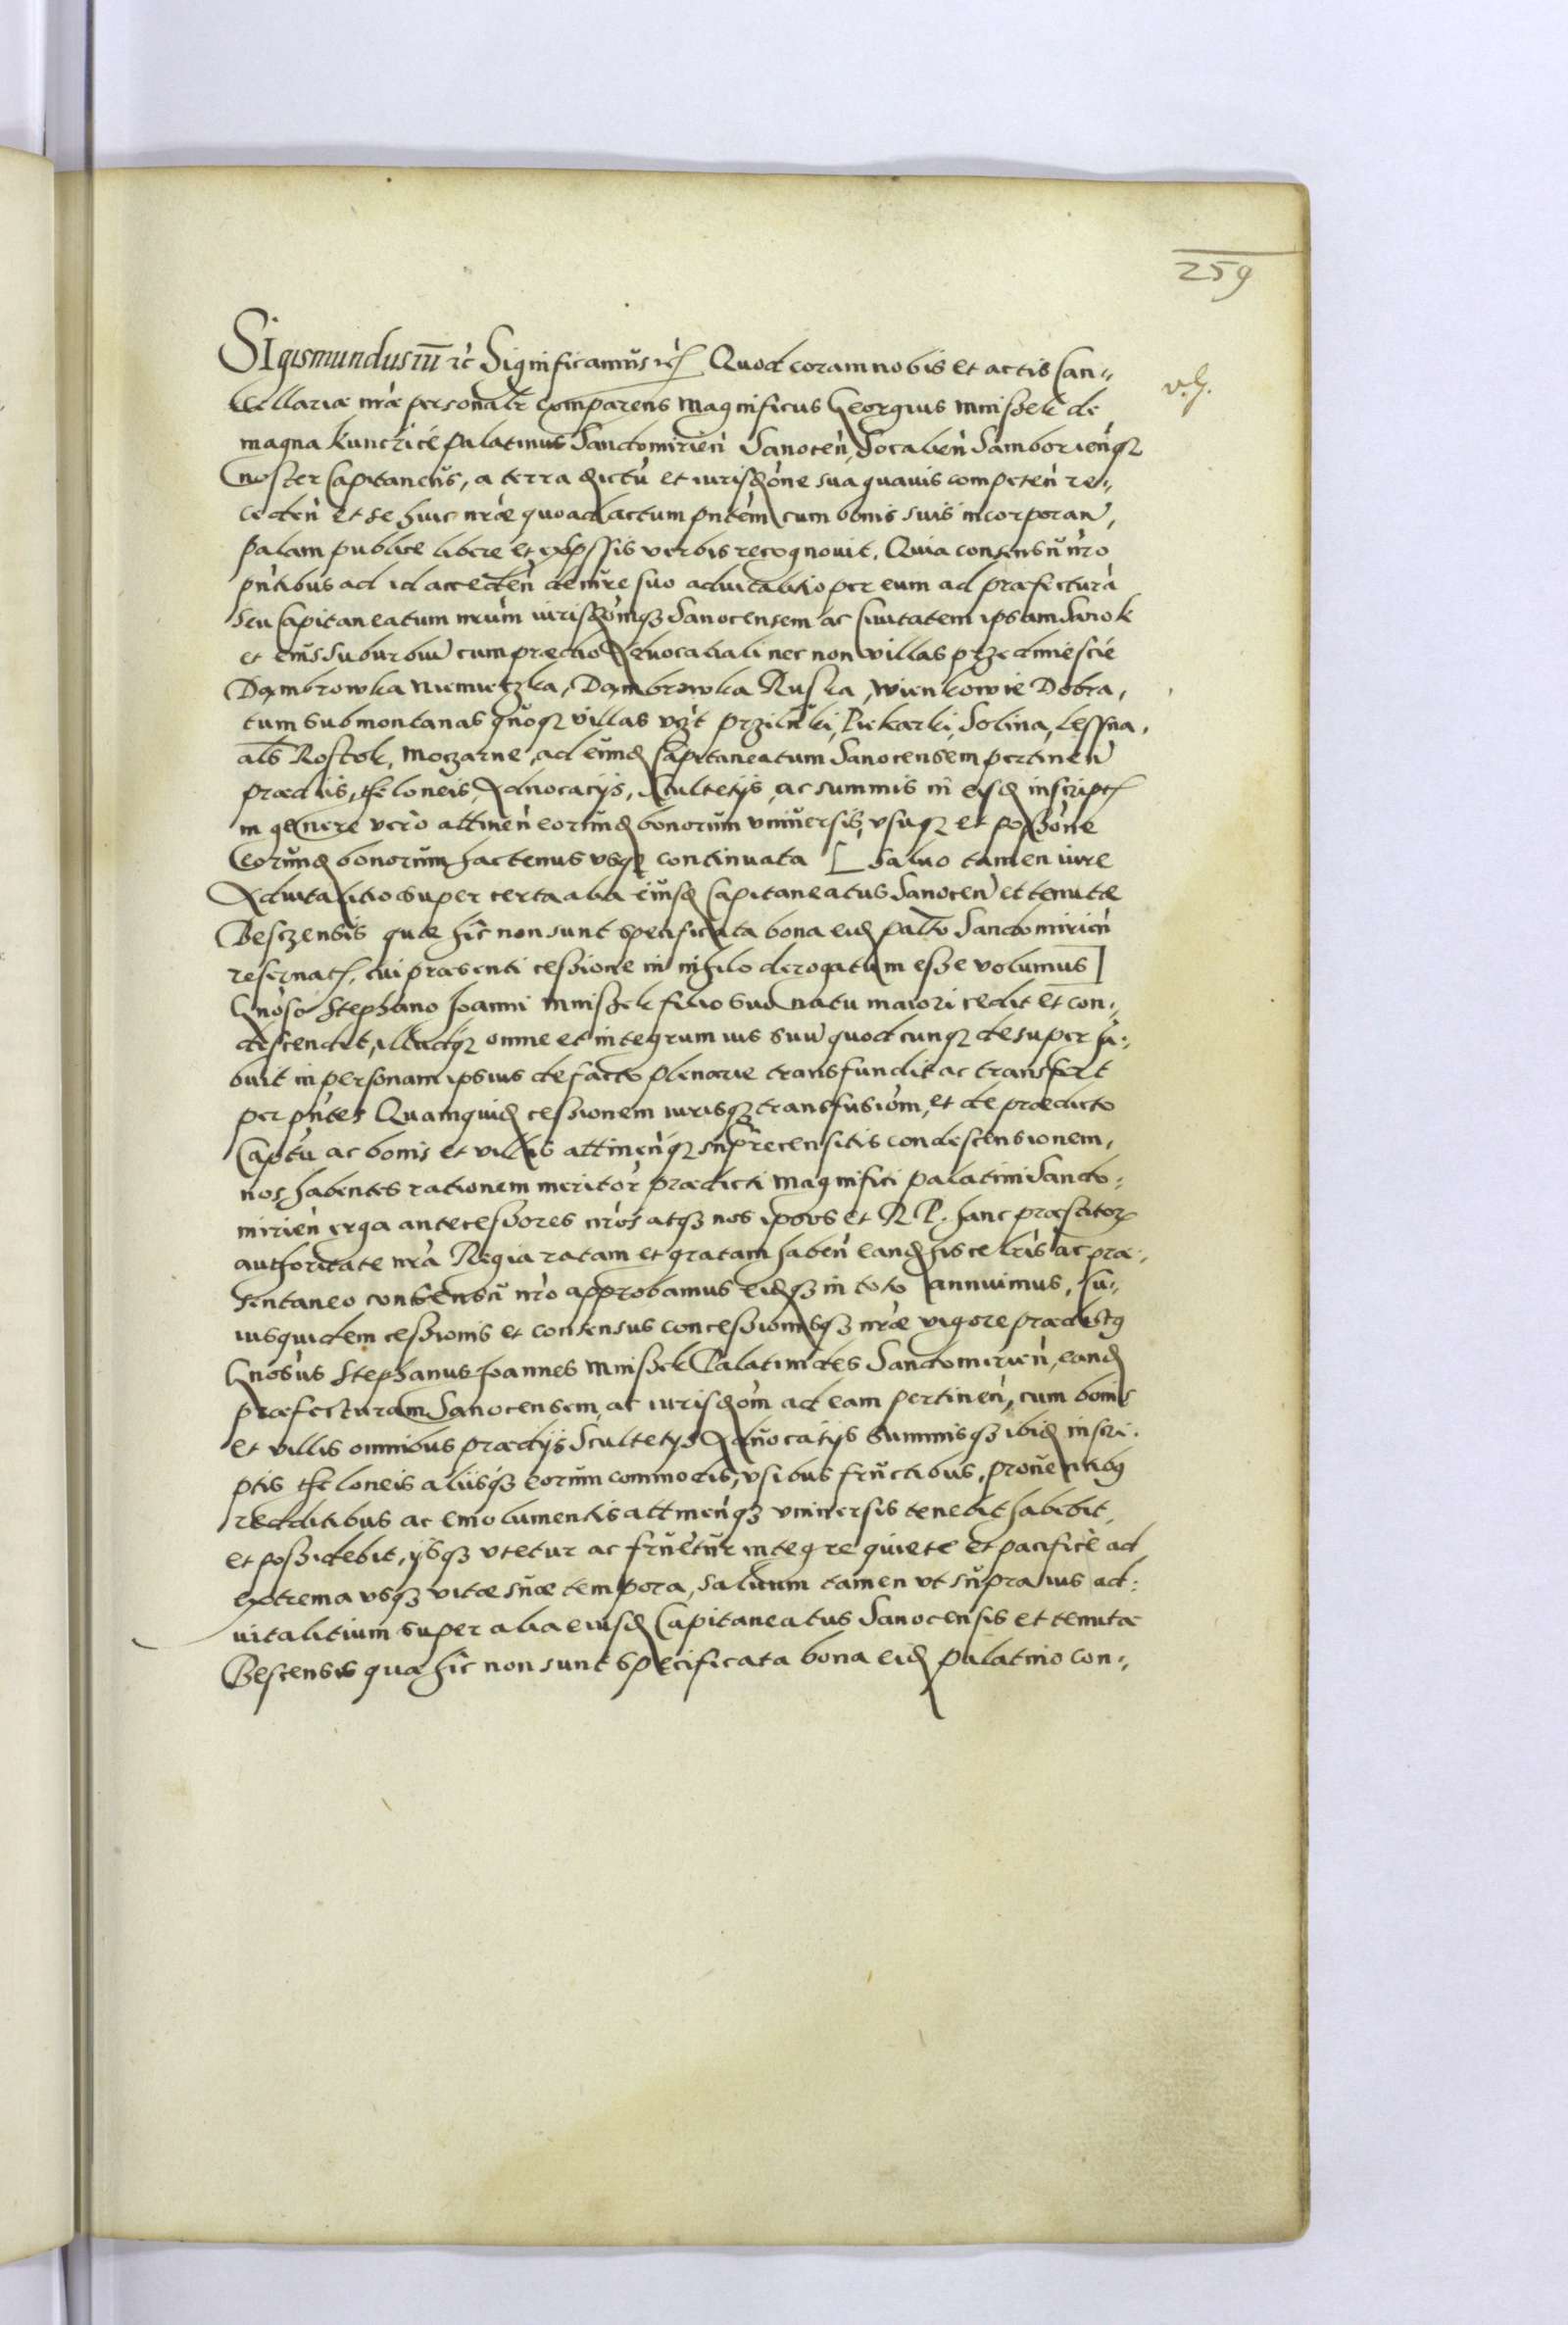 259
SIgismundus iii rc̃ Significamus rc̃ Quod coram nobis et actis Can„
cellariæ nræ personalr̃ comparens Magnificus Georgius Mnissek de
magna kunczicze palatinus Sandomirien̄ Sanocen̄, Socalien̄ Samborienq̃
noster Capitaneus, a terra dictũ et iurisdõne sua quauis competen̄ re„
ceden̄ et se huic nræ quoad actum pntẽm cum bonis suis incorporan̄,
palam publice libere et exp̃ssis verbis recognouit. Quia consensu nr̃o
pñtibus ad id acceden̄ de iure suo aduitalitio per eum ad præfecturã
seu Capitaneatum nrũm iurisdõmq̃ Sanocensem ac Ciuitatem ipsam Sanok
et eius suburbiũ cum prædio Aduocatiali nec non villas przedmiescie
Dąmbrowka niemieczka, Dąmbrowka Ruska, Wienkowie Dobra,
tum submontanas quoq̃ villas vzt̃ Piekarki, Solina, Lessna,
als̃ Rostok, Moczarne, ad eũnd Capitaneatum Sanocensem pertinen̄
prædiis, theloneis, Aduocatijs, Scultetijs, ac summis in eisd̃ inscript̃
in genere vero attinen̄ eorund̃ bonorum vniuersis, vsuq̃ et possõne
eorund̃ bonorum hactenus vsq̃ continuata [ Saluo tamen iure
Aduitalitio super certa alia eiusd̃ Capitaneatus Sanocen̄ et tenutæ
Besczensis quæ hic non sunt specificata bona eid̃ palt̃o Sandomirien̄
reseruat̃, cui præsenti cessione in nihilo derogatum esse volumus ]
Gnõso Stephano Joanni Mnissek filio suo natu maiori cedit et con„
descendit, illudq̃ omne et integrum ius suũ quodcunq̃ desuper ha„
buit in personam ipsius de facto plenarie transfundit ac transfert
per pñtes Quamquid̃ cessionem iurisq̃ transfusiõm, et de prædicto
Capt̃u ac bonis et villis attinenq̃ supr̃ecensitis condescensionem,
nos habentes rationem meritor̃ prædicti Magnifici palatini Sando„
mirien̄ erga antecessores nrõs atq̃ nos ipsos et R P. hanc præstitor̃
authoritate nr̃a Regia ratam et gratam haben̄ eand̃ hisce lr̃is ac præ„
sentaneo consensu nr̃o approbamus eidq̃ in toto annuimus, Cu„
iusquidem cessionis et consensus concessionisq̃ nræ vigore prædictus
Gnosus Stephanus Joannes Mnissek Palatinides Sandomirien̄, eand̃
præfecturam Sanocensem, ac iurisdõm ad eam pertinen̄, cum bonis
et villis omnibus prædijs Scultetijs Aduocatijs summisq̃ ibid̃ inscri„
ptis theloneis alijsq̃ eorum commodis, vsibus fructibus, prouentibus
redditibus ac emolumentis attinenq̃ vniuersis tenebit habebit,
et possidebit, ijsq̃ vtetur ac fruetur integre quiete et pacifice ad
extrema vsq̃ vitæ suæ tempora, Saluum tamen vt supra ius ad„
uitalitium super alia eiusd̃ Capitaneatus Sanocensis et tenutæ
Bescensis quæ hic non sunt specificata bona eid̃ palatino con„